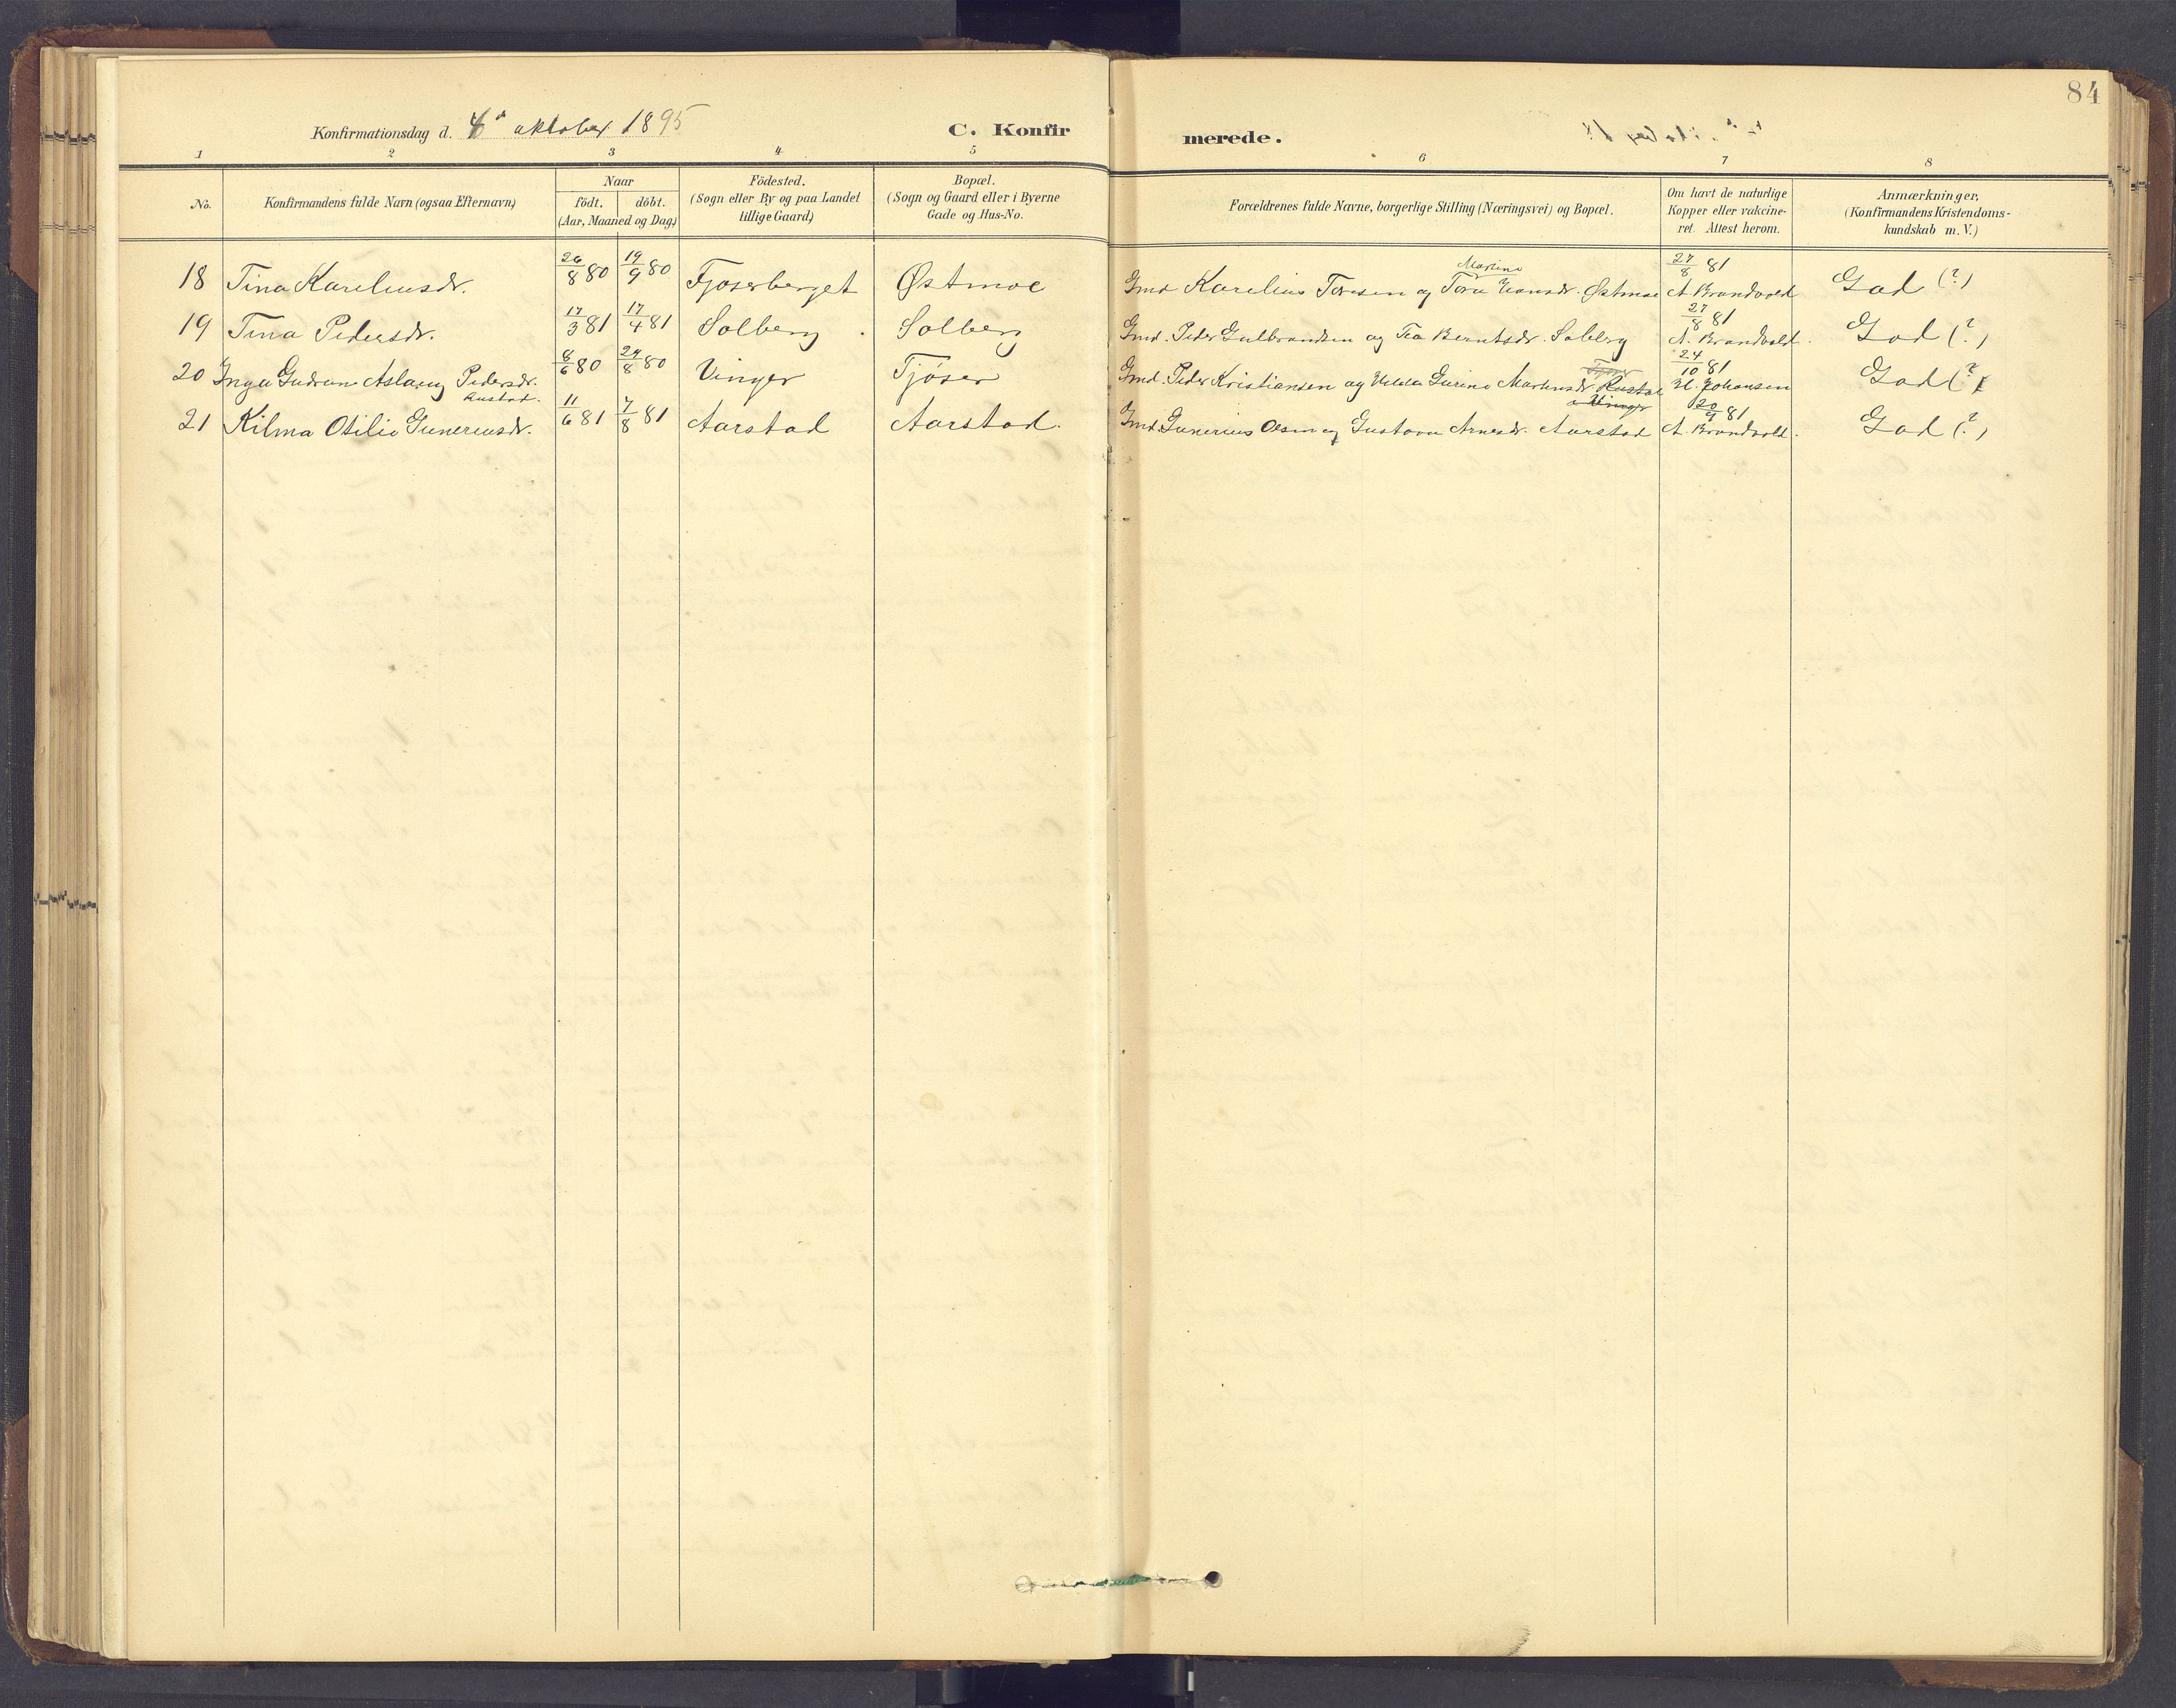 84
Konfirmationsdag d. 6' oktober 1895
C. Konfirmerede.
1 2 3 4 5 6 7 8
No.
Konfirmandens fulde Navn (ogsaa Efternavn)
Naar
födt. döbt.
(Aar, Maaned og Dag)
Födested.
(Sogn eller By og paa Landet
tillige Gaard)
Bopæl.
(Sogn og Gaard eller i Byerne
Gade og Hus-No.
Forældrenes fulde Navne, borgerlige Stilling (Næringsvei) og Bopæl.
Om havt de naturlige
Kopper eller vakcine-
ret. Attest herom.
Anmærkninger,
(Konfirmandens Kristendoms-
kundskab m. V.)
18 Tina Kareliusdr. 26/8 80 19/9 80 Fjöserberget Østmoe Gmd Karelius Toresen og Martine Hansdr. Østmoe 27/8 81 A. Brandvold God (?)
19 Tina Pedersdr. 17/3 81 17/4 81 Solberg Solberg Gmd. Peder Gulbrandsen og Tea Berntsdr. Solberg 27/8 81 A. Brandvold. God (?)
20 Inga Gudrun Aslaug Pedersdr. Rustad. 8/6 80 24/8 80 Vinger Tjöser Gmd. Peder Kristiansen og Hilda Gurine Martinsdr. Rustad i Vinger 24/10 81 H. Johansen God (?)
21 Kilma Otilie Guneriusdr. 11/6 81 7/8 81 Aarstad Aarstad. Gmd. Gunerius Olsen og Gustava Arnesdr. Aarstad 20/9 81 A. Brandvold. God (?)